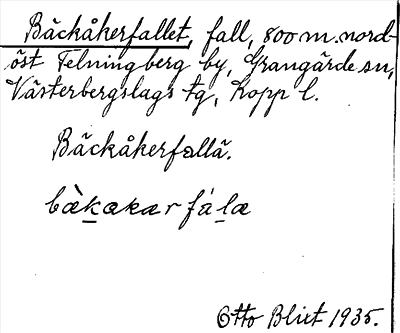 Bäckåkerfallet, fall, 800 m. nord-
öst Felningberg by, Grangärde sn,
Västerbergslags tg, Kopp l.
Bäckåkerfallä.
bækakær fálæ
Otto Blixt 1935.